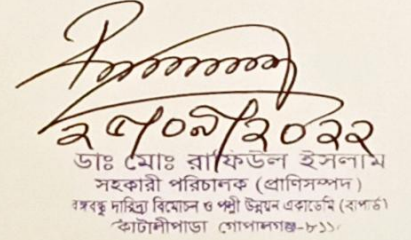 ২৫/০৯/২০২২
ডাঃ মোঃ রাফিউল ইসলাম
সহকারী পরিচালক (প্রাণিসম্পদ)
বঙ্গবন্ধু দারিদ্র্য বিমোচন ও পল্লী উন্নয়ন একাডেমি (বাপার্ড)
কোটালীপাড়া গোপালগঞ্জ-৮১১০